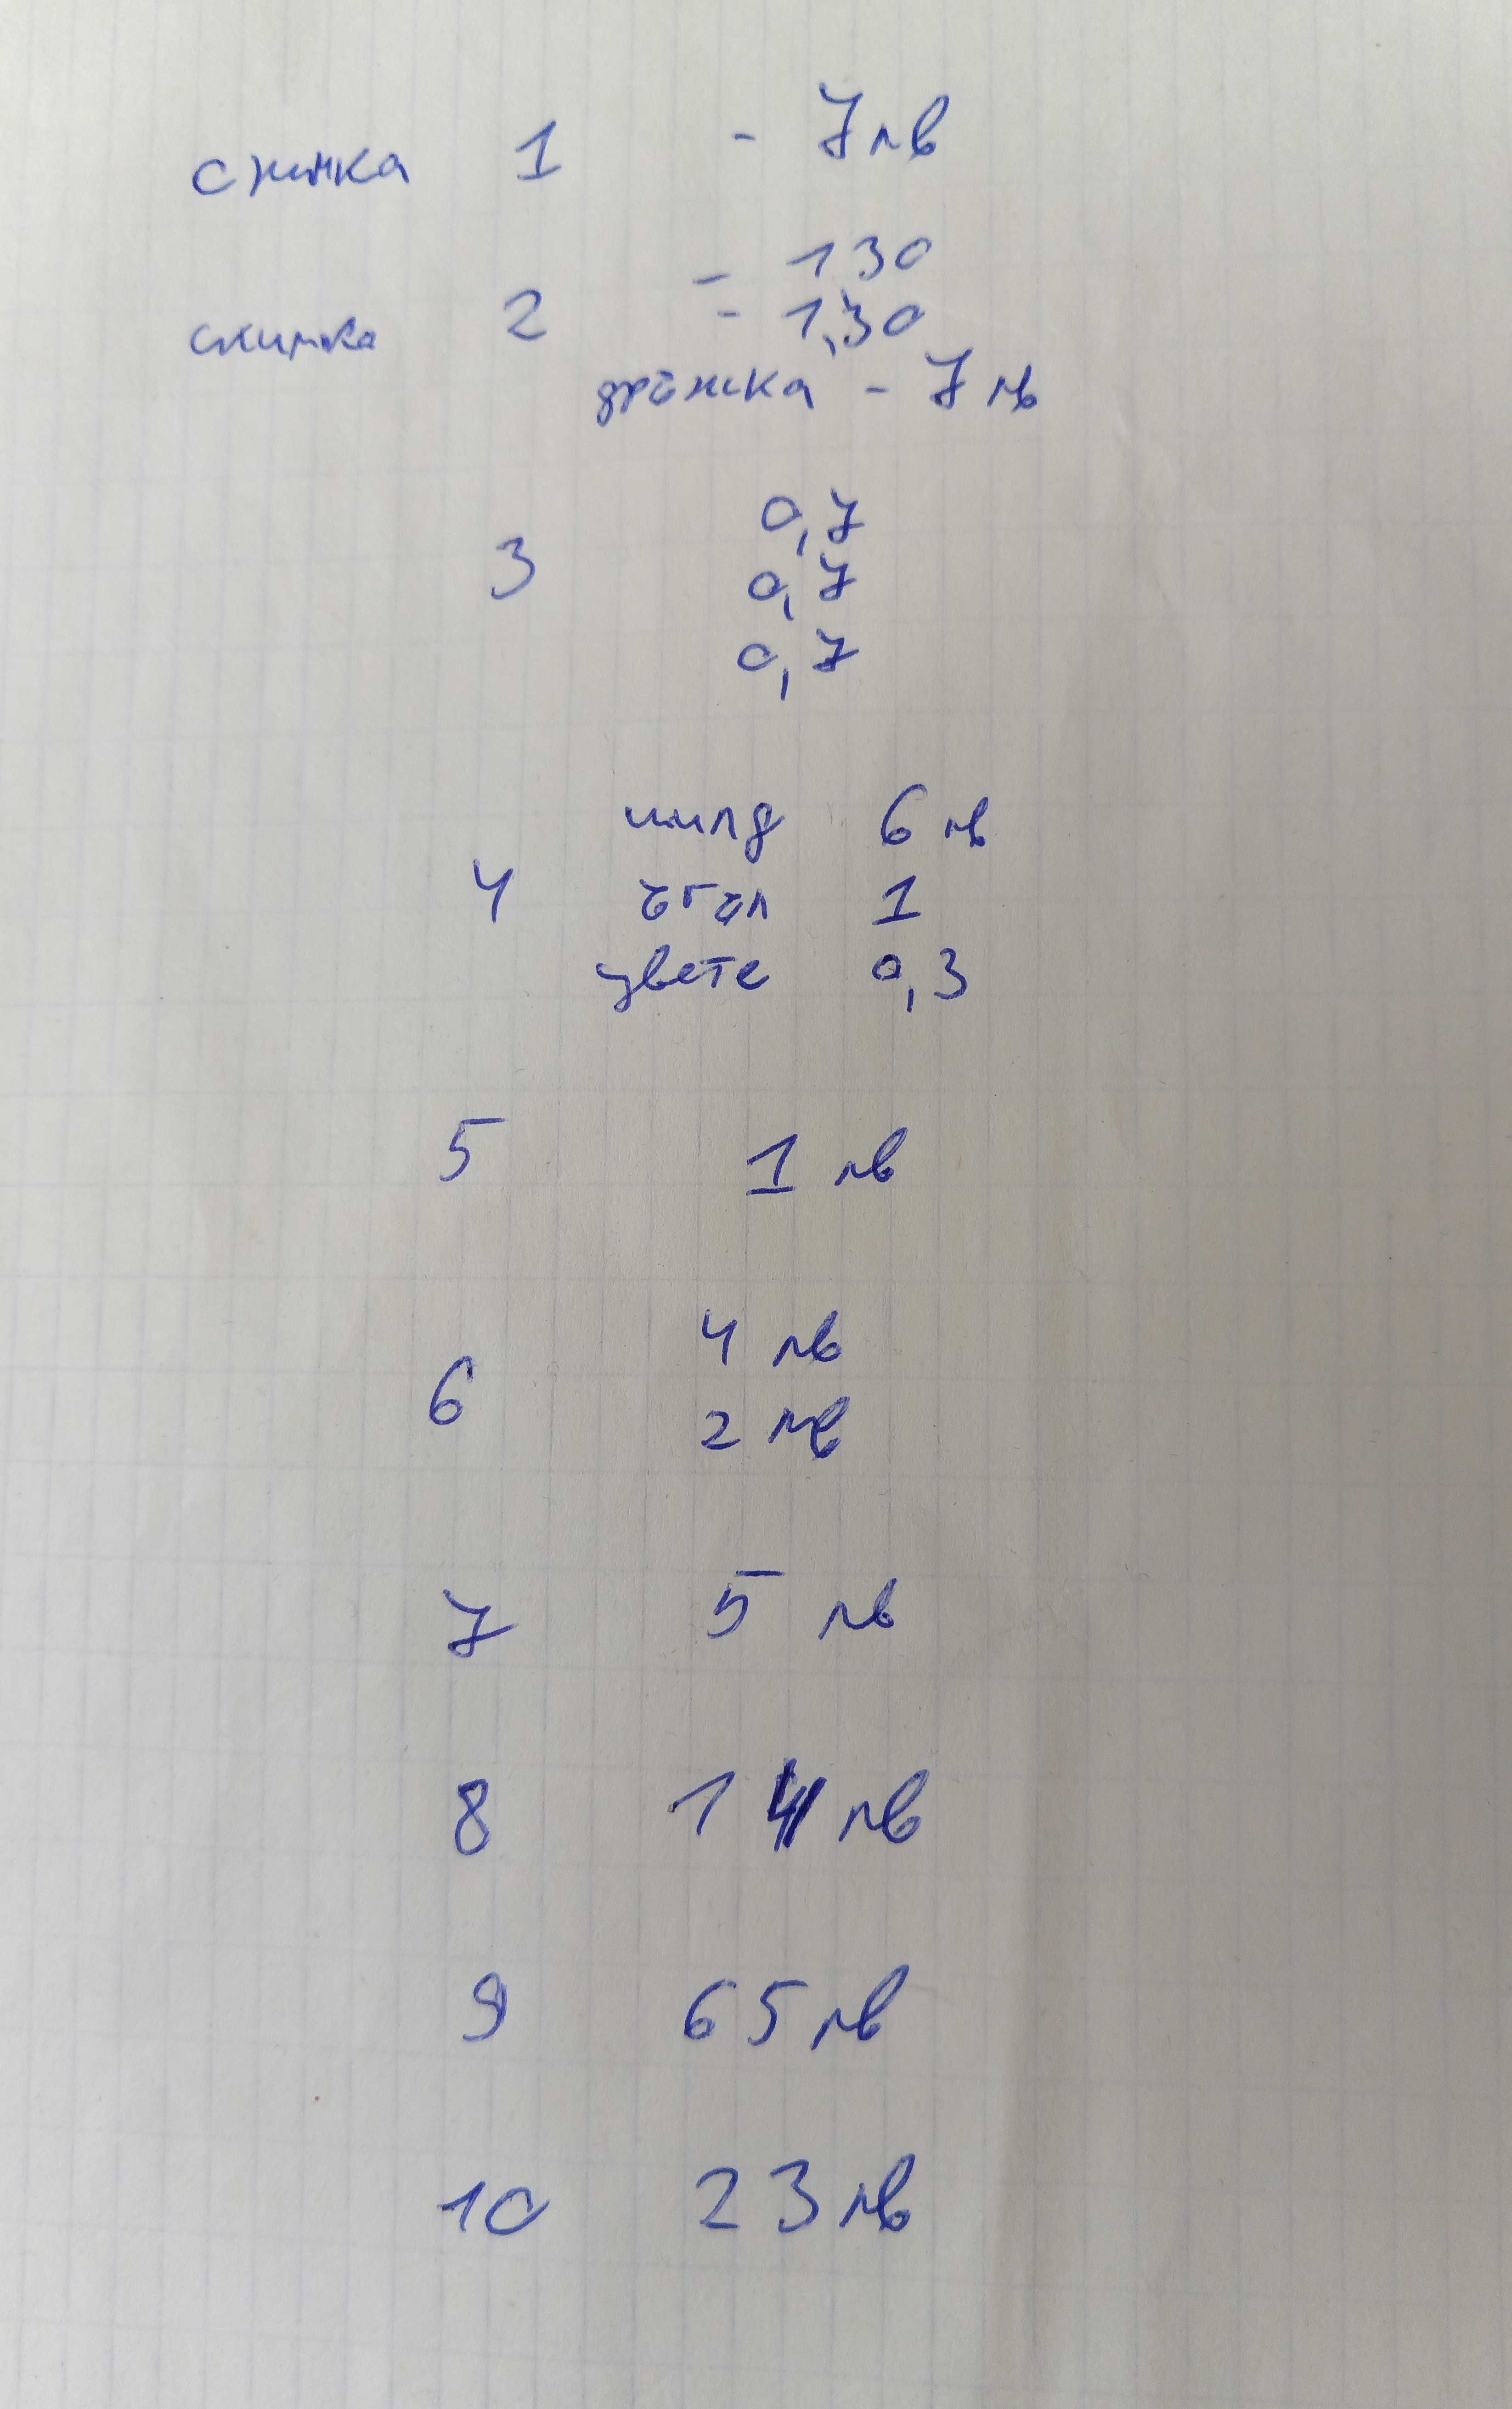 снимка 1 - 7лв
- 130
снимка 2 - 1,30
дръжка - 7 лв
0,7
3 0,7
0,7
шилд 6 лв
4 ъгъл 1
цвете 0,3
5 1 лв
4 лв
6 2 лв
7 5 лв
8 14 лв
9 65 лв
10 23 лв